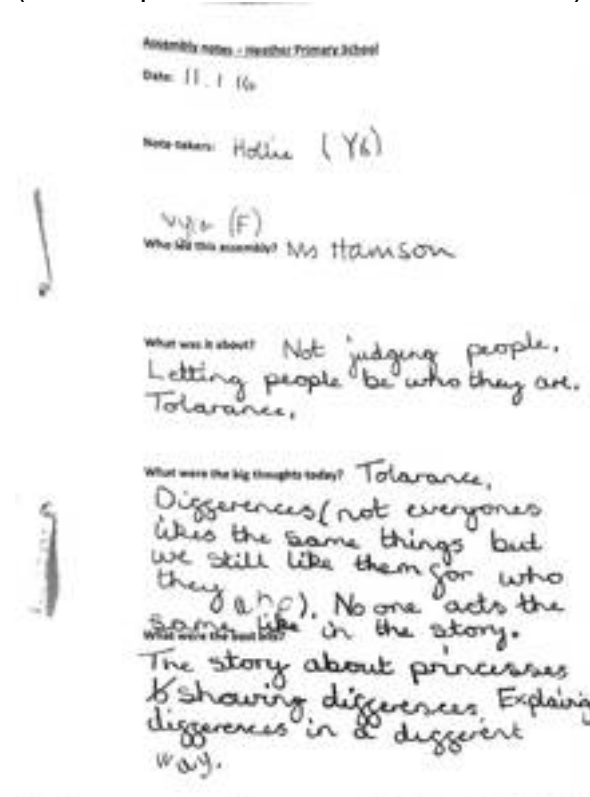 Assembly notes – Heather Primary School
Date: 11.1.16
Note-takers: Hollie (Y6)
(F)
Who led this assembly? Ms Hamson
What was it about? Not judging people.
Letting people be who they are.
Tolarance.
What were the big thoughts today? Tolarance,
Differences (not everyones
likes the same things but
we still like them for who
they are). No one acts the
same like in the story.
What were the best bits?
The story about princesses
showing differences. Explaining
differences in a different
way.